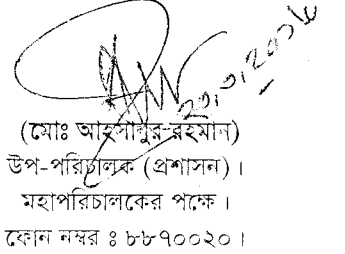 (মোঃ আহসানুর-রহমান)
উপ-পরিচালক (প্রশাসন)।
মহাপরিচালকের পক্ষে।
ফোন নম্বর ঃ ৮৮৭০০২০।